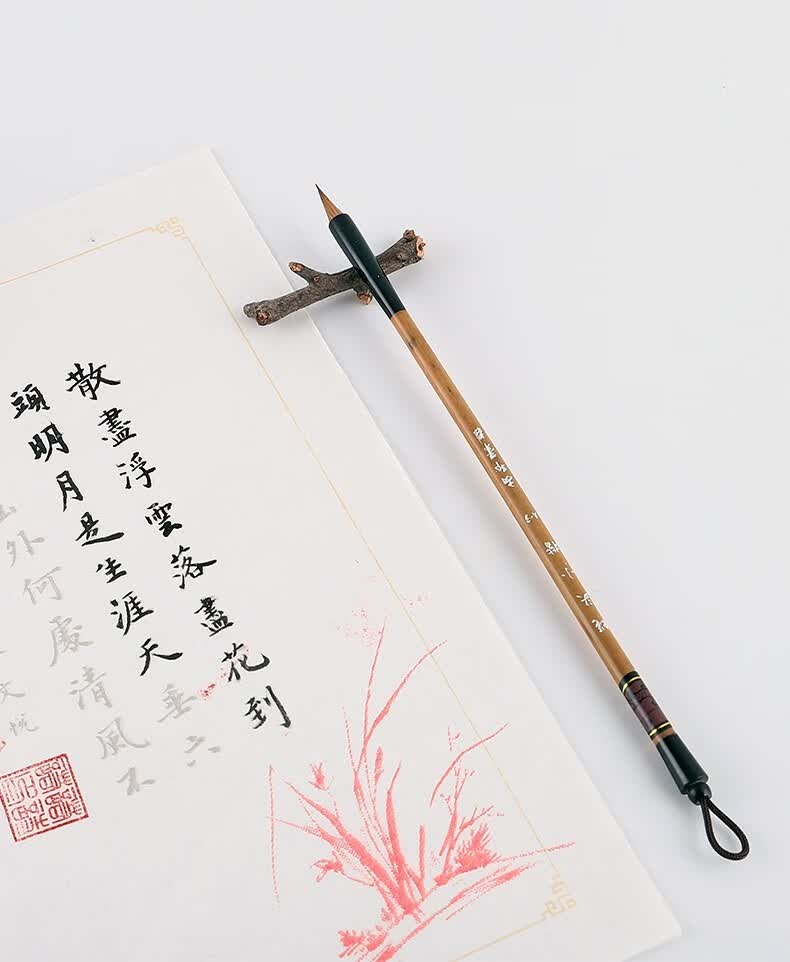 散盡浮雲落盡花到
頭明月是生涯天垂六
外何處清風不
文悅
小楷